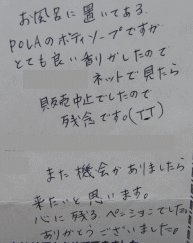 お風呂に置いてある
POLAのボディソープですが
とても良い香りがしたので
ネットで見たら
販売中止でしたので
残念です。(TT)
また機会がありましたら
来たいと思います。
心に残るペンションでした。
ありがとうございました。